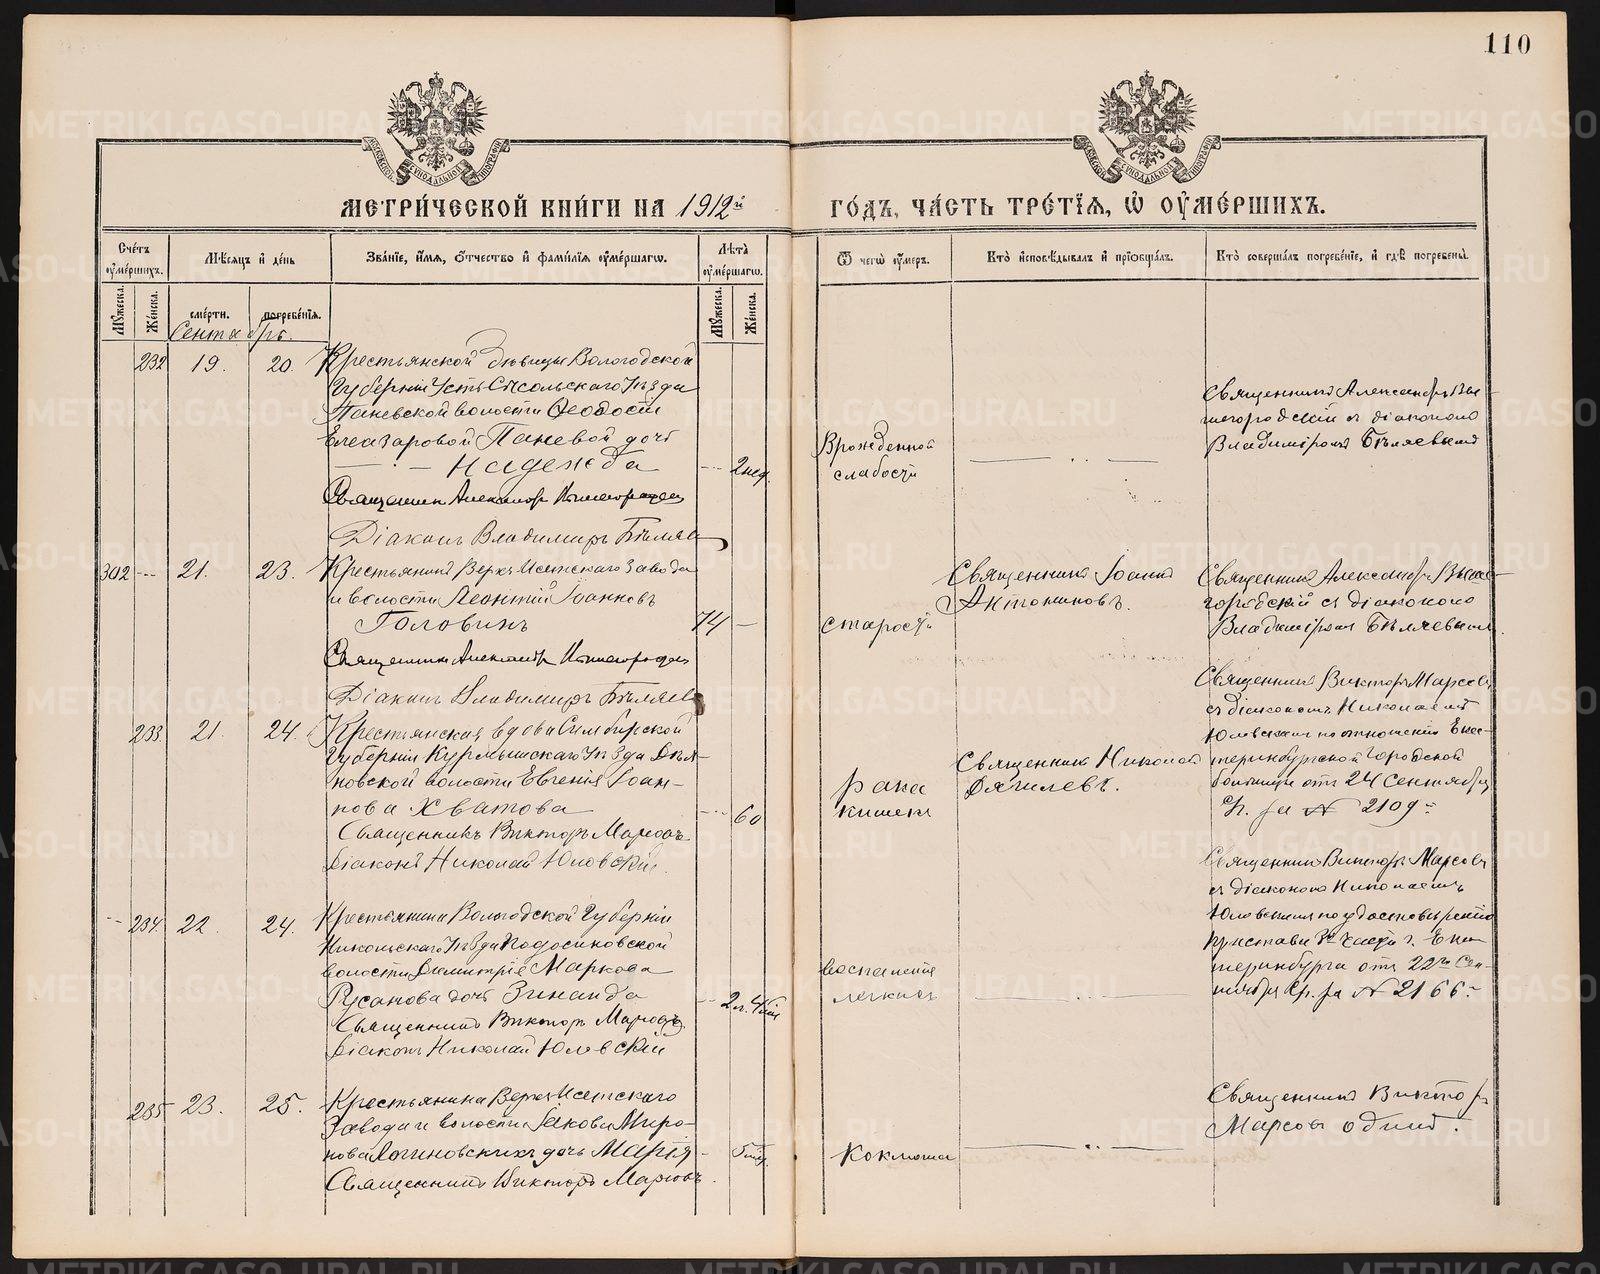 110
МЕТРИ́ЧЕСКОЙ КНИ́ГИ НА 1912й ГО́ДЪ, ЧА́СТЬ ТРЕ́ТЇѦ, Ѡ҆ ОУ҆МЕ́РШИХЪ.
Сче́тъ оу҆ме́ршихъ.
Мѣ́сяцъ и҆ де́нь
Зва́нїе, и҆́мѧ, ѻ҆́тчество и҆ фами́лїѧ оу҆ме́ршагѡ.
Лѣ́та оу҆ме́ршагѡ.
Ѿ чегѡ̀ оу҆́меръ.
Кто̀ и҆сповѣ́дывалъ и҆ прїѻбща́лъ.
Кто̀ соверша́лъ погребе́нїе, и҆ гдѣ̀ погребены̀.
Мꙋ́жеска.
Же́нска.
сме́рти.
погребе́нїѧ.
Мꙋ́жеска.
Же́нска.
Сентябрь.
232 19. 20. Крестьянской дѣвицы Вологодской
Губерніи Усть Сысольскаго Уѣзда
волости Ѳеодосіи
Елеазаровой Паневой дочь
Надежда 2 нед.
Священникъ Александръ
Діаконъ Владимиръ Бѣляев
Врожденной
слабости
Священникъ Александръ Вы-
шегородскій съ діакономъ
Владиміромъ Бѣляевымъ
302 21. 23. Крестьянинъ Верхъ Исетскаго Завода
и волости Леонтій Іоанновъ
Головинъ 74
Священникъ Александръ
Діаконъ Владимиръ Бѣляевъ
старости
Священникъ Іоаннъ
Антониновъ.
Священникъ Александръ Выше-
городскій съ діакономъ
Владиміромъ Бѣляевымъ.
233. 21. 24. Крестьянская вдова Симбирской
Губерніи Курмышскаго Уѣзда
новской волости Евгенія Іоан-
нова Хватова 60
Священникъ Викторъ Марсовъ
Діаконъ Николай Юловскій.
рака
кишекъ
Священникъ Николай
Дягилевъ.
Священникъ Викторъ Марсовъ
съ діакономъ Николаемъ
Юловскимъ по отношенію Ека-
теринбургской Городской
больницы отъ 24 Сентября
с/г. за № 2109
234. 22. 24. Крестьянина Вологодской Губерніи
Никольскаго Уѣзда Подосиновской
волости Димитрія Маркова
Русанова дочь Зинаида 2 г. 4 м.
Священникъ Викторъ Марсовъ
Діаконъ Николай Юловскій
воспаленія
легкихъ
Священникъ Викторъ Марсовъ
съ діакономъ Николаемъ
Юловскимъ по удостовѣренію
Пристава части г. Ека-
теринбурга отъ 22го Сен-
тября с/г. за № 2166
235 23. 25. Крестьянина Верхъ Исетскаго
Завода и волости Іакова Миро-
нова Логиновскихъ дочь Марія
Священникъ Викторъ Марсовъ.
Коклюша
Священникъ Викторъ
Марсовъ одинъ.